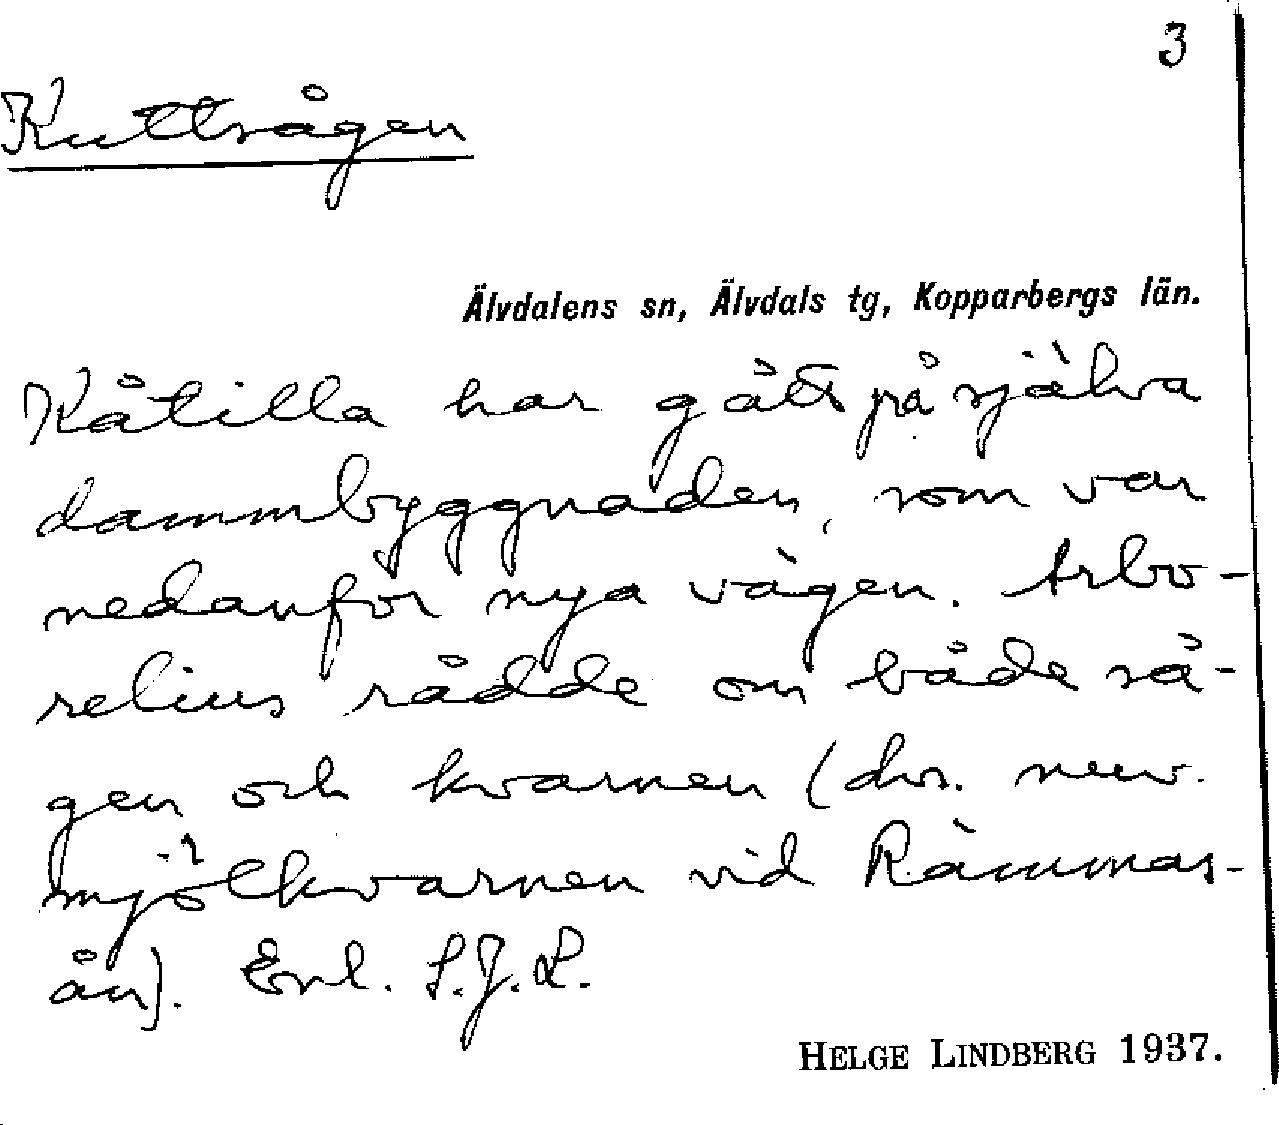 3
Kuttsågen
Älvdalens sn, Älvdals tg, Kopparbergs län.
Kåtilla har gått på själva
dammbyggnaden, som var
nedanför nya vägen. Arbo-
relius rådde om både så-
gen och kvarnen (dvs.
mjölkvarnen vid Rämmas-
ån). Enl. S.J.L.
HELGE LINDBERG 1937.